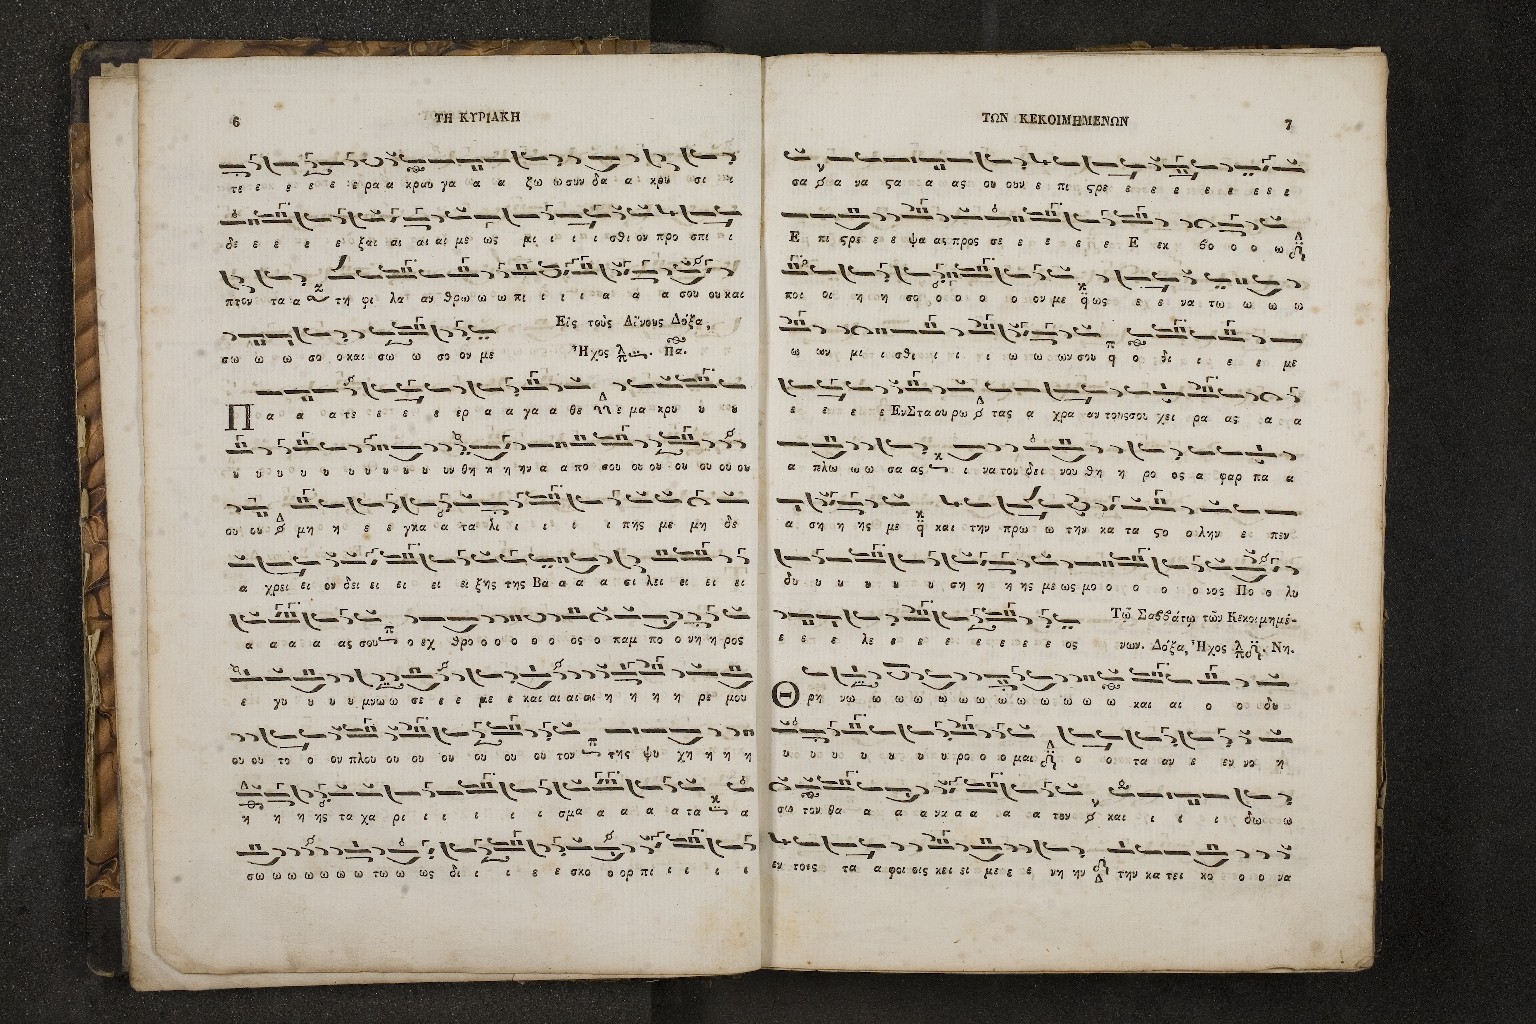 6
ΤΗ ΚΥΡΙΑΚΗ
τε ε ε ε ε ε ρα α κραυ γα α α ζω ω συν δα α κρυ σι ι
δε ε ε ε ε ξαι αι αι αι με ως μι ι ι ι σθι ον προ σπι ι
πτον τα α τη φι λα αν θρω ω ω πι ι ι ι α α α σου ου και
Εἰς τοὺς Αἴνους Δόξα,
σω ω ω σο ο και σω ω σο ον με
Ἦχος λ π Πα.
Πα α α τε ε ε ε ερ α α γα α θε ε μα κρυ υ υ
υ υ υ υ υ υ υ υ υ υν θη η η ην α α πο σου ου ου ου ου ου ου
ου ου μη η ε ε γκα α τα λι ι ι ι ι ι πης με μη δε
α χρει ει ον δει ει ει ει ει ξης της Βα α α α σι λει ει ει ει
α α α α ας σου ο εχ θρο ο ο ο ο ο ος ο παμ πο ο νη η ρος
ε γυ υ υ υ μνω ω σε ε ε με ε και αι αι αι η η η η ρε μου
ου ου το ο ον πλου ου ου ου ου ου ου τον της ψυ χη η η η
η η η ης τα χα ρι ι ι ι ι ι ι σμα α α α α τα α
σω ω ω ω ω ω ω τω ω ως δι ι ι ε ε σκο ο ορ πι ι ι ι ι
ΤΩΝ ΚΕΚΟΙΜΗΜΕΝΩΝ
7
σα α να ϛα α ας ου ουν ε πι ϛρε ε ε ε ε ε ε ε ε
Ε πι ϛρε ε ε ψα ας προς σε ε ε ε ε ε Ε εκ βο ο ο ω
ποι οι η η σο ο ο ο ο ον με ως ε ε να τω ω ω ω
ω ων μι ι σθι ι ι ι ω ω ων σου ο δι ι ε ε με
ε ε ε ε Εν Σταου ρω τας α χρα αν τους σου χει ρα ας α α
α πλω ω ω σα ας ι να του δει νου θη η ρο ος α φαρ πα α
α ση η ης με και την πρω ω την κα τα ϛο ο λην ε πεν
δυ υ υ υ υ υ υ ση η η ης με ως μο ο ο ο ο νος Πο ο λυ
ε ε ε λε ε ε ε ε ε ε ε ος
Τῷ Σαββάτῳ τῶν Κεκοιμημέ-
νων. Δόξα, Ἦχος λ π Νη.
Θρη νω ω ω ω ω ω ω ω ω ω ω ω ω και αι ο ο δυ
υ υ υ υ υ υ υ ρο ο ο μαι ο ο τα αν ε εν νο η
σω τον θα α α α να α α α α τον και ι ι ι δω ω
εν τοις τα α φοι οις κει ει με ε ε νη ην την κα τει κο ο ο να